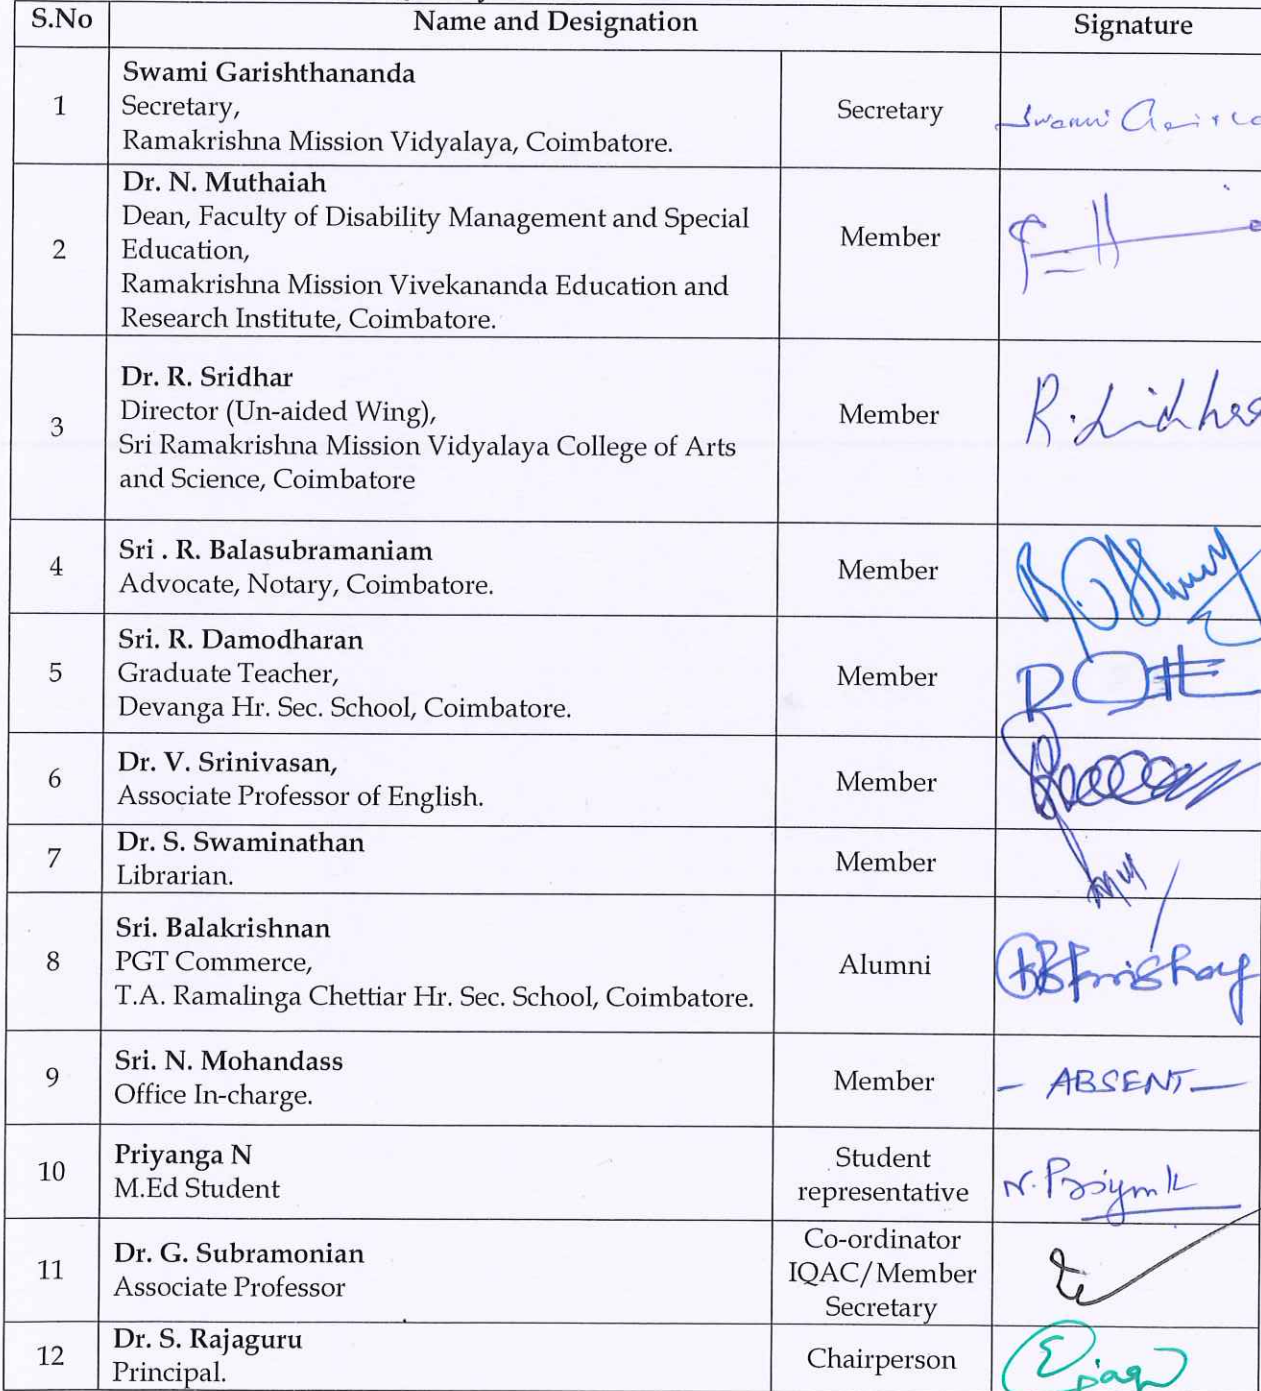 S.No Name and Designation Signature
1
Swami Garishthananda
Secretary,
Ramakrishna Mission Vidyalaya, Coimbatore.
Secretary
Swami
2
Dr. N. Muthaiah
Dean, Faculty of Disability Management and Special
Education,
Ramakrishna Mission Vivekananda Education and
Research Institute, Coimbatore.
Member
3
Dr. R. Sridhar
Director (Un-aided Wing),
Sri Ramakrishna Mission Vidyalaya College of Arts
and Science, Coimbatore
Member
4
Sri . R. Balasubramaniam
Advocate, Notary, Coimbatore.
Member
5
Sri. R. Damodharan
Graduate Teacher,
Devanga Hr. Sec. School, Coimbatore.
Member
6
Dr. V. Srinivasan,
Associate Professor of English.
Member
7
Dr. S. Swaminathan
Librarian.
Member
8
Sri. Balakrishnan
PGT Commerce,
T.A. Ramalinga Chettiar Hr. Sec. School, Coimbatore.
Alumni
9
Sri. N. Mohandass
Office In-charge.
Member
- ABSENT -
10
Priyanga N
M.Ed Student
Student
representative
11
Dr. G. Subramonian
Associate Professor
Co-ordinator
IQAC/Member
Secretary
12
Dr. S. Rajaguru
Principal.
Chairperson